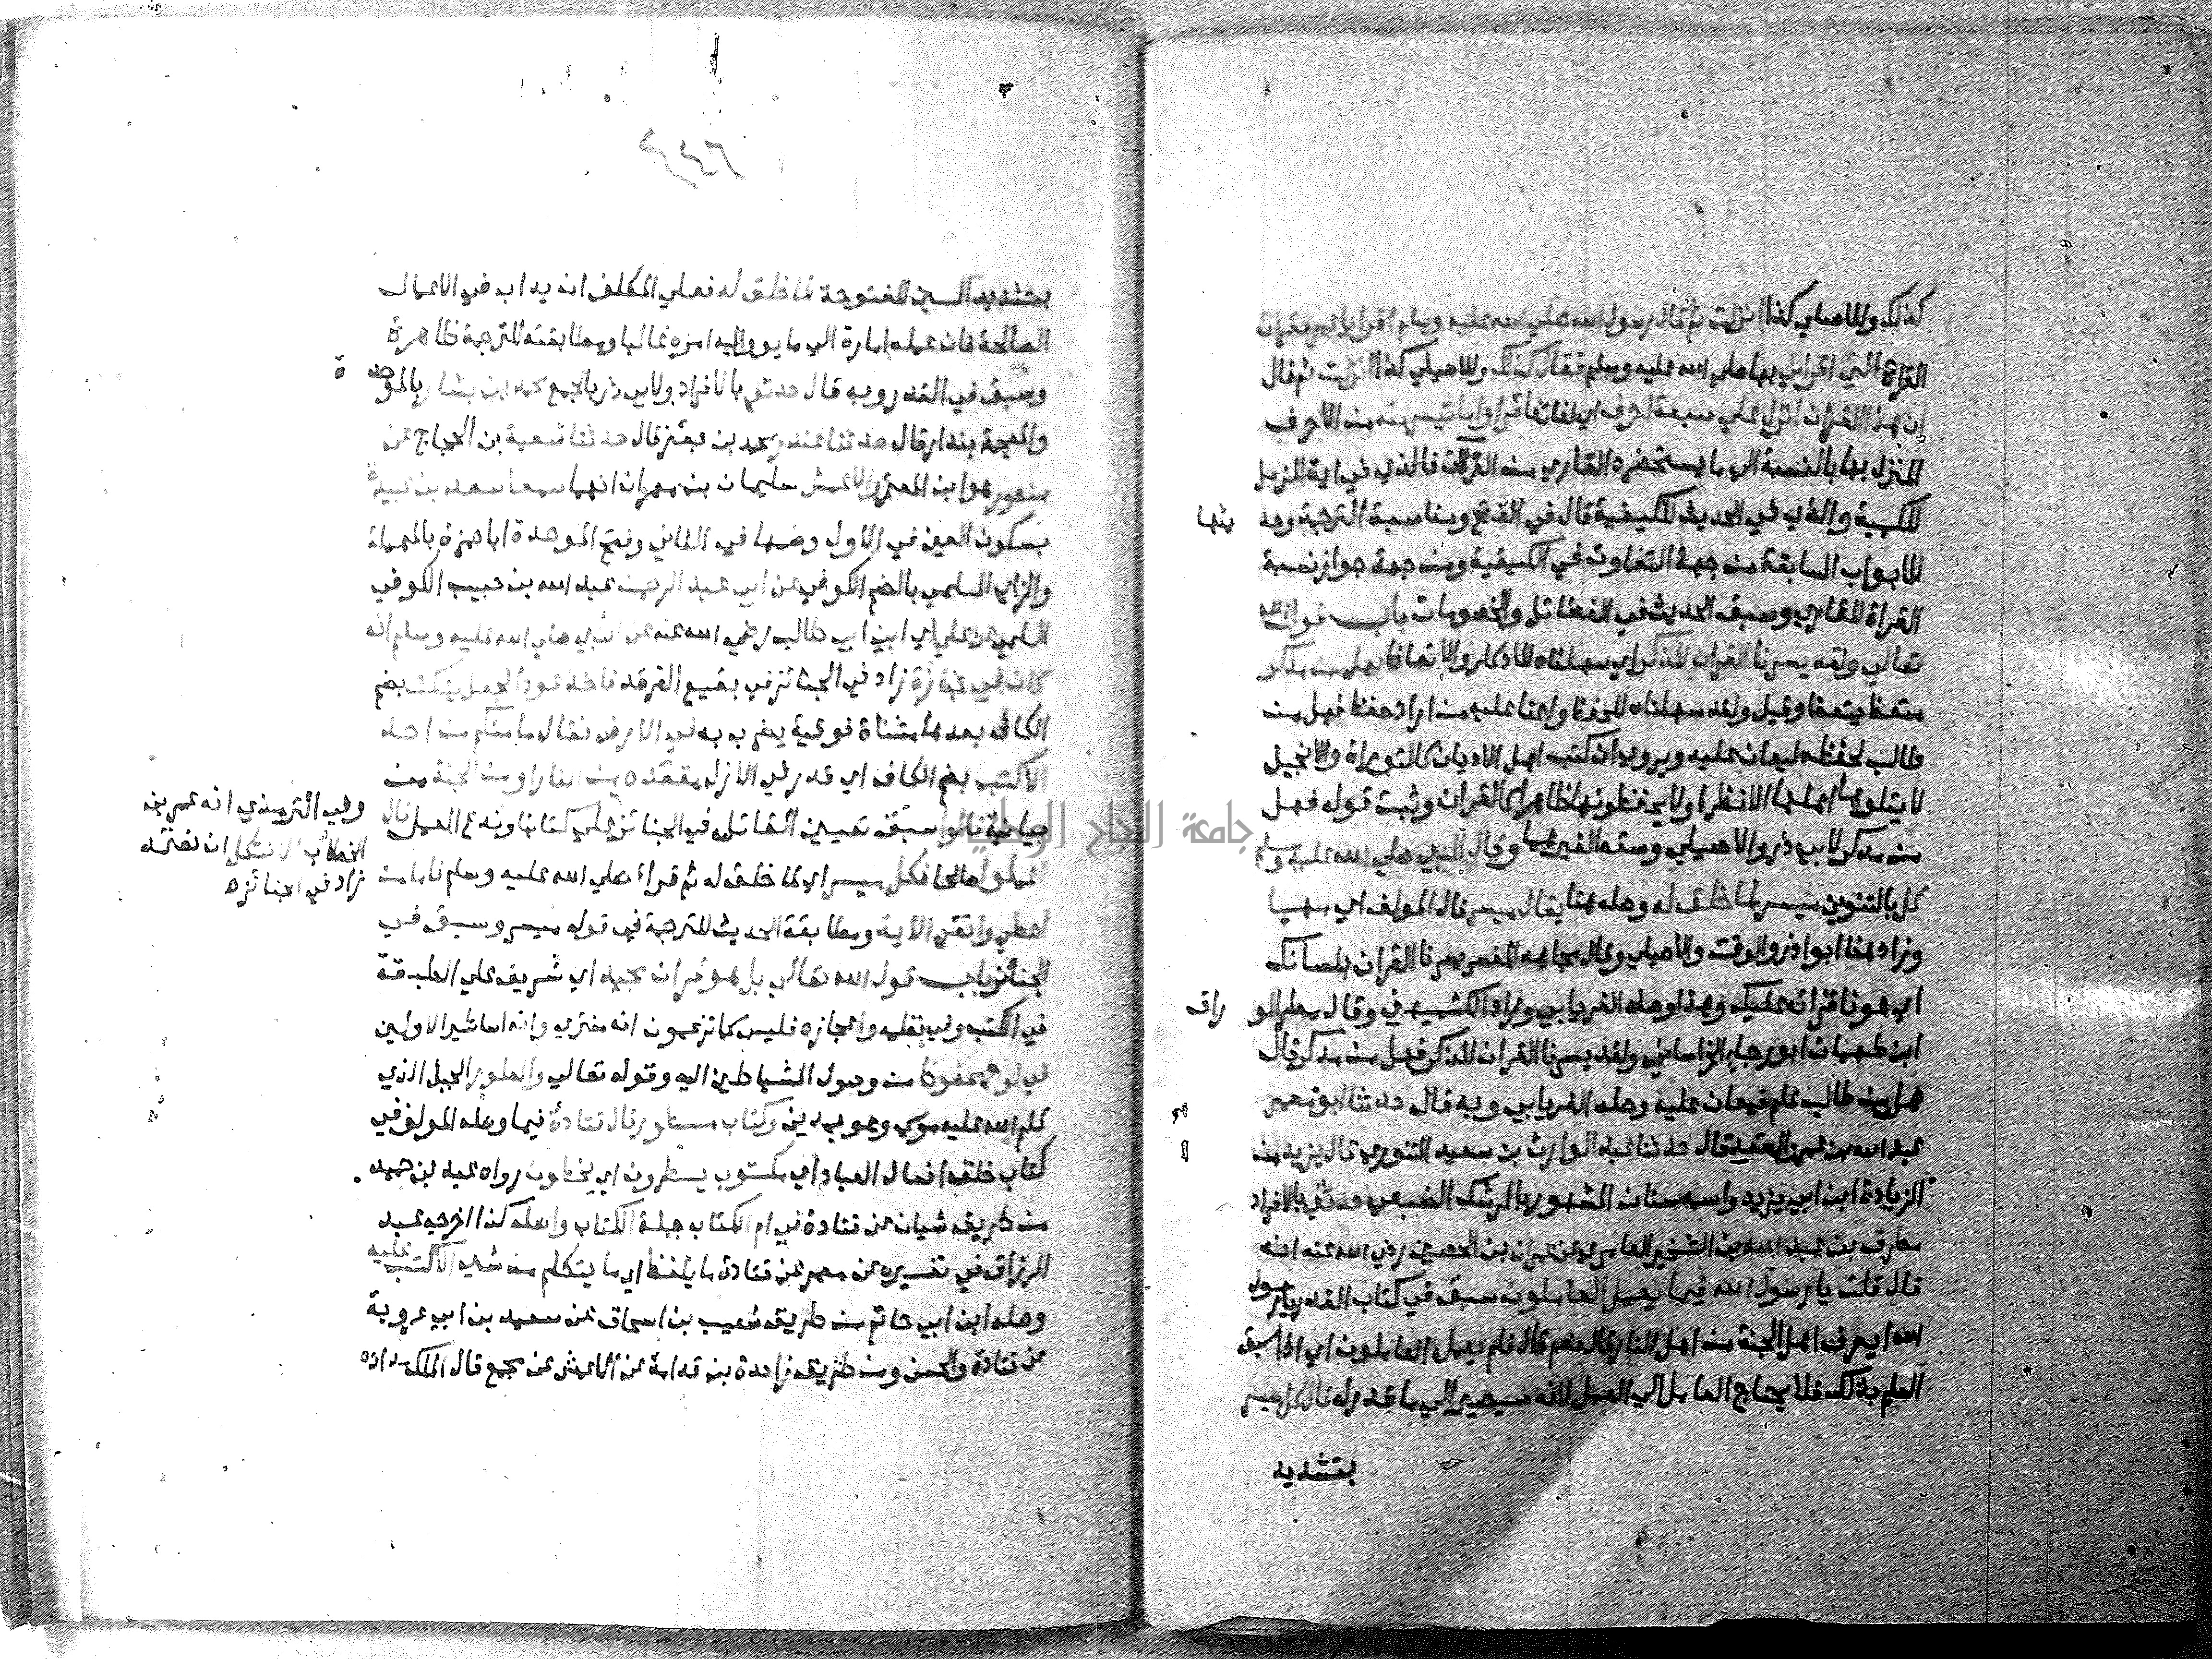 كذلك وللاصيلي كذا انزلت ثم قال رسول الله صلي الله عليه وسلم اقرا يا عمر فقرات
القراة التي اقراني بها صلي الله عليه وسلم فقال كذلك وللاصيلي كذا انزلت ثم قال
ان هذا القران انزل علي سبعة احرف اي لغات فاقراوا ما تيسر منه من الاحرف
المنزل بها بالنسبة الي ما يستحضره القاري من القراات فالذي في اية المزمل
للكمية والذي في الحديث للكيفية قال في الفتح ومناسبة الترجمة وحديثها
للابواب السابقة من جهة التفاوت في الكيفية ومن جهة جواز نسبة
القراة للقاري وسبق الحديث في الفضائل والخصومات باب قول الله
تعالي ولقد يسرنا القران للذكر اي سهلناه للادكار والاتعاظ فهل من مدكر
متعظ يتعظ وقيل ولقد سهلناه للحفظ واعنا عليه من اراد حفظه فهل من
طالب لحفظه ليعان عليه ويروي ان كتب اهل الاديان كالتوراة والانجيل
لا يتلوها اهلها الا نظرا ولا يحفظونها ظاهرا كالقران وثبت قوله فهل
من مدكر لابي ذر والاصيلي وسقط لغيرهما وقال النبي صلي الله عليه وسلم
كل بالتنوين ميسر لما خلق له وصله هنا يقال ميسر قال المولف اي مهيا
وزاد هنا ابوا ذر والوقت والاصيلي وقال مجاهد المفسر يسرنا القران بلسانك
اي هونا قراته عليك وهذا وصله الفريابي وزاد الكشميهني وقال مطر الوراق
ابن طهمان ابو رجاء الخراساني ولقد يسرنا القران للذكر فهل من مدكر قال
هل من طالب علم فيعان عليه وصله الفريابي وبه قال حدثنا ابو معمر
عبد الله بن عمرو المقعد قال حدثنا عبد الوارث بن سعيد التنوري قال يزيد من
الزيادة ابن ابي يزيد واسمه سنان المشهور بالرشك الضبعي حدثني بالافراد
مطرف بن عبد الله بن الشخير العامري عن عمران بن الحصين رضي الله عنه انه
قال قلت يا رسول الله فيما يعمل العاملون سبق في كتاب القدر يا رسول
الله ايعرف اهل الجنة من اهل النار قال نعم قال فلم يعمل العاملون اي اذا سبق
العلم بذلك فلا يحتاج العامل الي العمل لانه سيصير الي ما قدر له قال كل ميسر
بتشديد
٤٤٦
بتشديد السين المفتوحة لما خلق له فعلي المكلف ان يداب في الاعمال
الصالحة فان عمله امارة الي ما يوول اليه امره غالبا ومطابقته للترجمة ظاهرة
وسبق في القدر وبه قال حدثني بالافراد ولابي ذر بالجمع محمد بن بشار بالموحدة
والمعجمة بندار قال حدثنا غندر محمد بن جعفر قال حدثنا شعبة بن الحجاج عن
منصور هو ابن المعتمر والاعمش سليمان بن مهران انهما سمعا سعد بن عبيدة
بسكون العين في الاول وضمها في الثاني وفتح الموحدة ابا حمزة بالمهملة
والزاي السلمي بالضم الكوفي عن ابي عبد الرحمن عبد الله بن حبيب الكوفي
السلمي عن علي اي ابن ابي طالب رضي الله عنه عن النبي صلي الله عليه وسلم انه
كان في جنازة زاد في الجنائز في بقيع الغرقد فاخذ عودا فجعل ينكت بضم
الكاف بعدها مثناة فوقية يضرب به في الارض فقال ما منكم من احد
الا كتب بضم الكاف اي قدر في الازل مقعده من النار او من الجنة من
بيانية قالوا سبق تعيين القائل في الجنائز علي كتابنا وندع العمل قال
اعملوا صالحا فكل ميسر اي لما خلق له ثم قراء صلي الله عليه وسلم فاما من
اعطي واتقي الاية ومطابقة الحديث للترجمة في قوله ميسر وسبق في
الجنائز باب قول الله تعالي بل هو قران مجيد اي شريف علي الطبقة
في الكتب وفي نظمه واعجازه فليس كما تزعمون انه مفتري وانه اساطير الاولين
في لوح محفوظ من وصول الشياطين اليه وقوله تعالي والطور الجبل الذي
كلم الله عليه موسي وهو بمدين وكتاب مسطور قال قتادة فيما وصله المولف في
كتاب خلق افعال العباد اي مكتوب يسطرون اي يخطون رواه عبد بن حميد
من طريق شيبان عن قتادة في ام الكتاب جملة الكتاب واصله كذا اخرجه عبد
الرزاق في تفسيره عن معمر عن قتادة ما يلفظ اي ما يتكلم من شي الا كتب عليه
وصله ابن ابي حاتم من طريق شعيب بن اسحاق عن سعيد بن ابي عروبة
عن قتادة والحسن ومن طريق زايدة بن قدامة عن الاعمش عن مجمع قال الملك مداده
وفي الترمذي انه عمر بن
الخطاب الا نتكل ان نعتمد
زاد في الجنائز
جامعة النجاح الوطنية